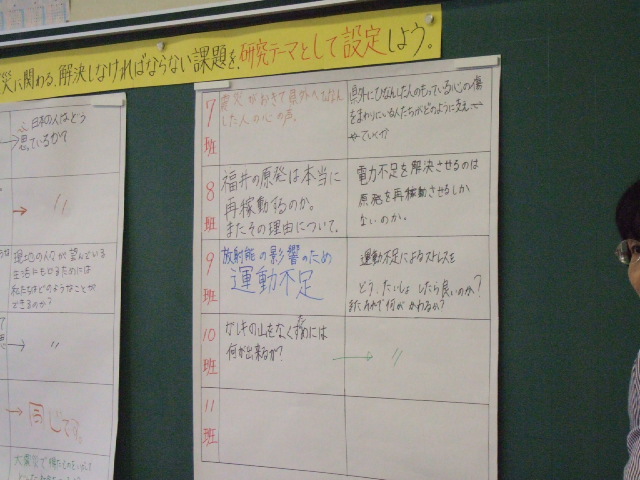 災に関わる、解決しなければならない課題を、研究テーマとして設定しよう。
日本の人はどう
思っているか?
→
〃
現地の人々が望んでいる
生活にもどるためには
私たちはどのようなことが
できるのか?
→
〃
→
同じです。
大震災で
7班
震災がおきて県外へひなん
した人の心の声。
県外にひなんした人のもっている心の傷
をまわりにいる人たちがどのように支え
ていくか
8班
福井の原発は本当に
再稼動するのか。
またその理由について。
電力不足を解決させるのは
原発を再稼動させるしか
ないのか。
9班
放射能の影響のため
運動不足
運動不足によるストレスを
どう、たいしょしたら良いのか?
またそれで何がかわるか?
10班
なしキの山をなくすためには
何が出来るか?
→
〃
11班